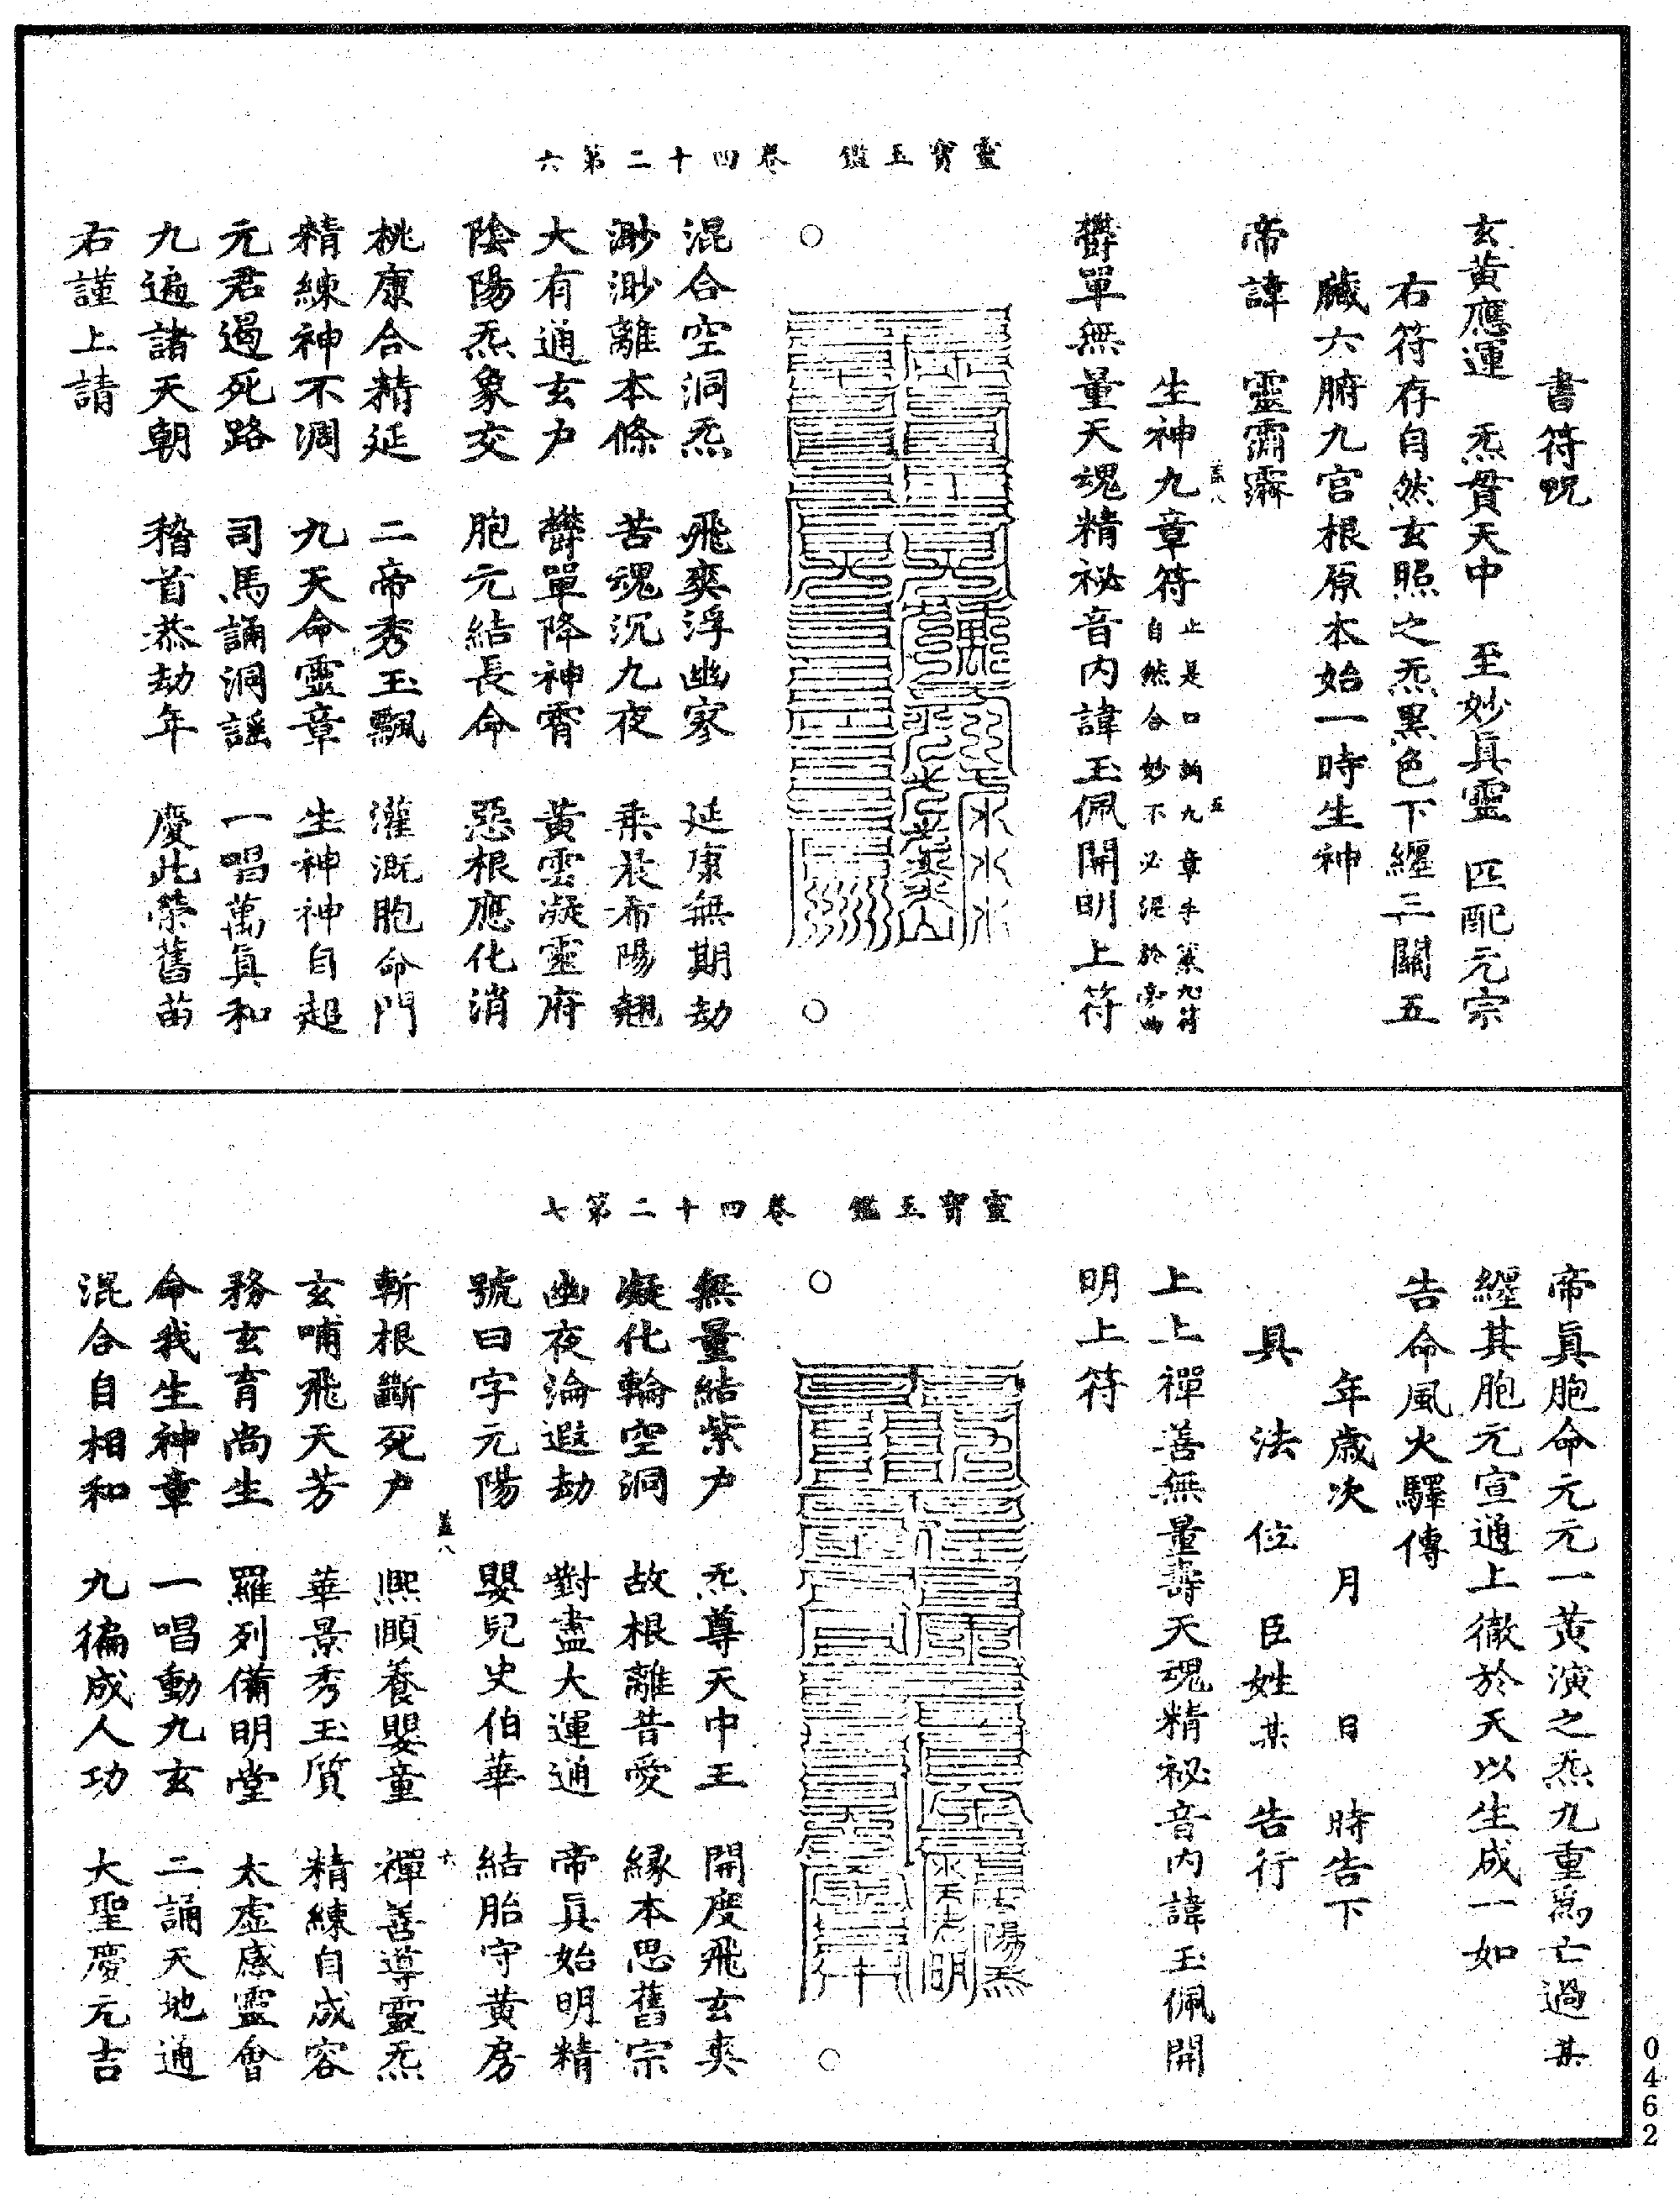 靈寶玉鑑　卷四十二第六
書符呪
玄黃應運　炁貫天中　至妙眞靈　匹配元宗
右符存自然玄照之炁黑色下纏三關五
臟六腑九宮根原本始一時生神
帝諱　靈霄霖
蓋八　五
生神九章符
止是口誦九章手篆九符
自然合妙不必泥於
鬱單無量天魂精祕音內諱玉佩開明上符
○
○
混合空洞炁　飛爽浮幽寥　延康無期劫
渺渺離本條　苦魂沉九夜　乘晨希陽翹
大有通玄戶　鬱單降神霄　黃雲凝靈府
陰陽炁象交　胞元結長命　惡根應化消
桃康合精延　二帝秀玉飄　灌溉胞命門
精練神不凋　九天命靈章　生神神自超
元君遏死路　司馬誦洞謠　一唱萬眞和
九遍諸天朝　稽首恭劫年　慶此榮舊苗
右謹上請
靈寶玉鑑　卷四十二第七
帝眞胞命元元一黃演之炁九重爲亡過某
纏其胞元宣通上徹於天以生成一如
告命風火驛傳
年歲次　月　日　時告下
具　法　位　臣姓某　告行
上上禪善無量壽天魂精祕音內諱玉佩開
明上符
○
○
無量結紫戶　炁尊天中王　開度飛玄爽
凝化輪空洞　故根離昔愛　緣本思舊宗
幽夜淪遐劫　對盡大運通　帝眞始明精
號曰字元陽　嬰兒史伯華　結胎守黃房
蓋八　六
斬根斷死戶　熙頤養嬰童　禪善導靈炁
玄哺飛天芳　華景秀玉質　精練自成容
務玄育尚生　羅列備明堂　太虛感靈會
命我生神章　一唱動九玄　二誦天地通
混合自相和　九徧成人功　大聖慶元吉
0462